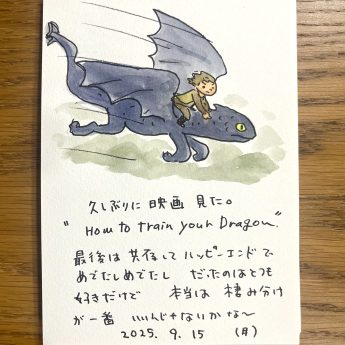 久しぶりに 映画 見た。
"How to train your Dragon."
最後は 共存して ハッピーエンドで
めでたしめでたし だったのはとても
好きだけど 本当は 棲み分け
が一番 いいんじゃないかな〜
2025. 9. 15 (月)